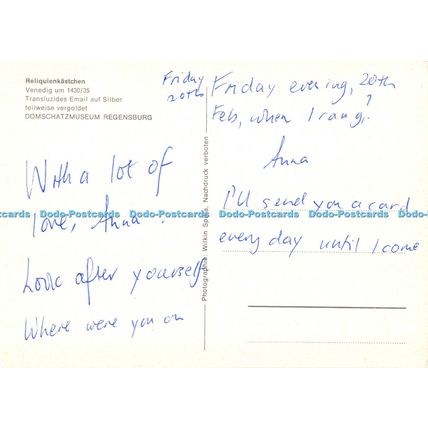 Reliquienkästchen
Venedig um 1430/35
Transluzides Email auf Silber
teilweise vergoldet
DOMSCHATZMUSEUM REGENSBURG
With a lot of
love, Anna!
Look after yourself
Where were you on
Friday
20th
Photographie: Wilkin Spitta, Nachdruck verboten
Friday evening, 20th
Feb, when I rang?
Anna
I'll send you a card
every day until I come
Dodo-Postcards Dodo-Postcards Dodo-Postcards Dodo-Postcards Dodo-Postcards